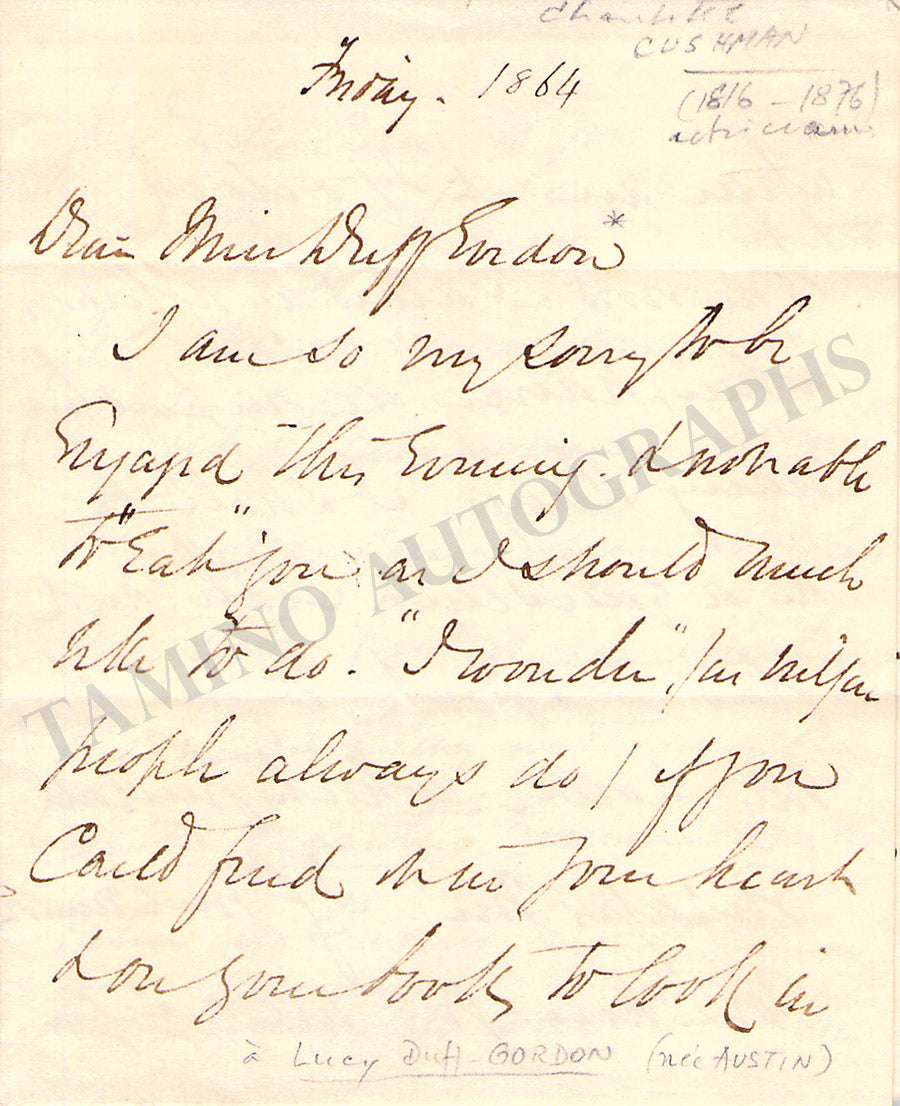 Charlotte
CUSHMAN
(1816 - 1876)
Friday. 1864
Dear Miss Duff Gordon *
I am so very sorry to be
Engaged this Evening. & not able
to "Eat" you as I should much
like to do. "I wonder", /
people always do / if you
Could find it in your heart
& on your books to look in
à Lucy Duff-GORDON (née AUSTIN)
TAMINO AUTOGRAPHS